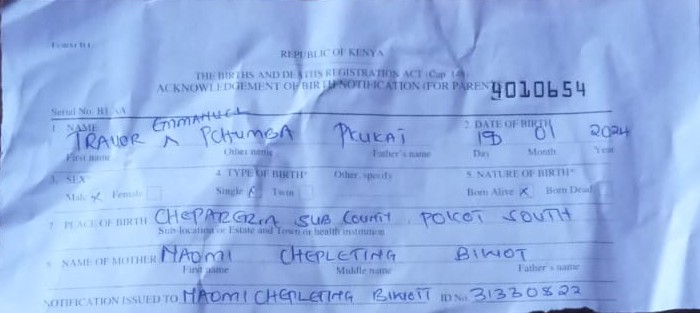 FORM B1
REPUBLIC OF KENYA
THE BIRTHS AND DEATHS REGISTRATION ACT (Cap 149)
ACKNOWLEDGEMENT OF BIRTH NOTIFICATION (FOR PARENT 9010654
Serial No.
1. NAME EMMANUEL 2. DATE OF BIRTH
TRAVOR ^ PCHUMBA PKUKAT 19 01 2024
First name Other name Father's name Day Month Year
3. SEX* 4. TYPE OF BIRTH* Other, specify 5. NATURE OF BIRTH*
Male X Female Single X Twin Born Alive X Born Dead
7. PLACE OF BIRTH CHEPARERIA SUB COUNTY POKOT SOUTH
Sub-location or Estate and Town or health institution
8. NAME OF MOTHER NAOMI CHEPLETING BIWOT
First name Middle name Father's name
NOTIFICATION ISSUED TO NAOMI CHEPLETING BIWOTT ID No. 31330822